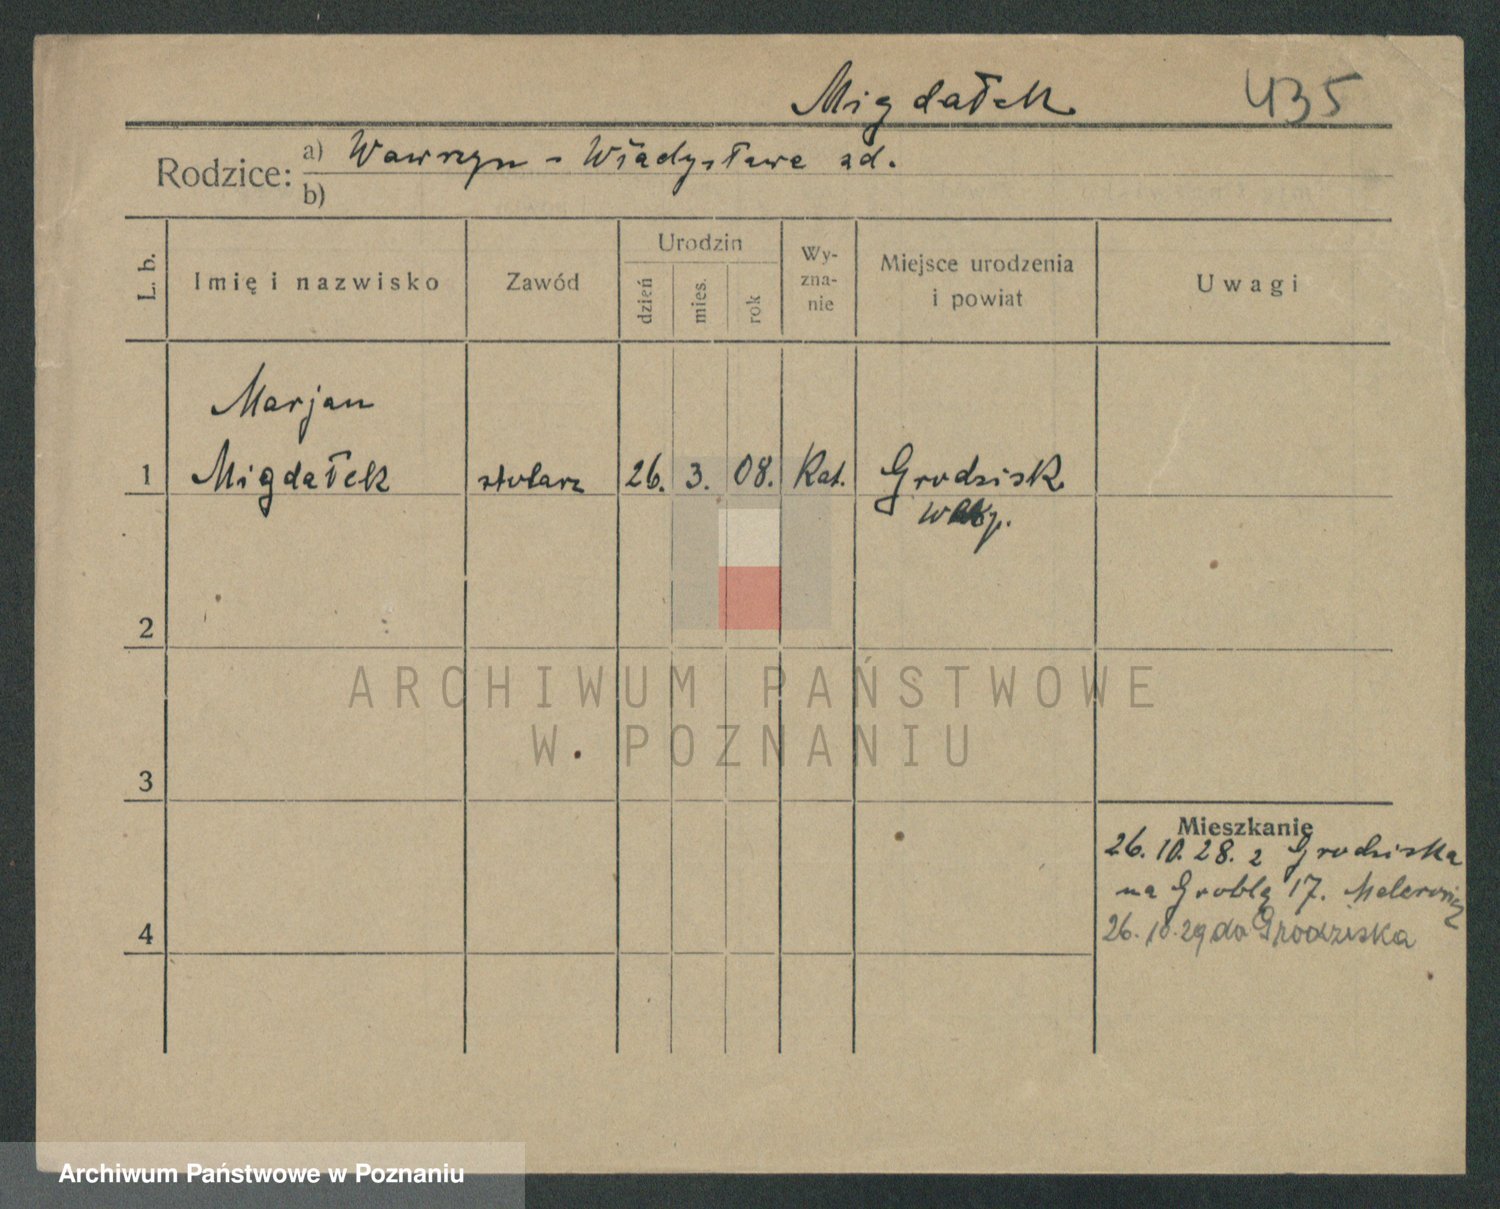 Migdałek 435
Rodzice: a) Wawrzyn - Władysława zd.
b)
L. b. Imię i nazwisko Zawód Urodzin dzień mies. rok Wy-zna-nie Miejsce urodzenia i powiat Uwagi
Marjan
1 Migdałek stolarz 26. 3. 08. Kat. Grodzisk
Wlkp.
2
ARCHIWUM PAŃSTWOWE
W POZNANIU
3
Mieszkanie
26. 10. 28. z Grodziska
na Groblę 17.
26. 10. 29 do Grodziska
4
Archiwum Państwowe w Poznaniu